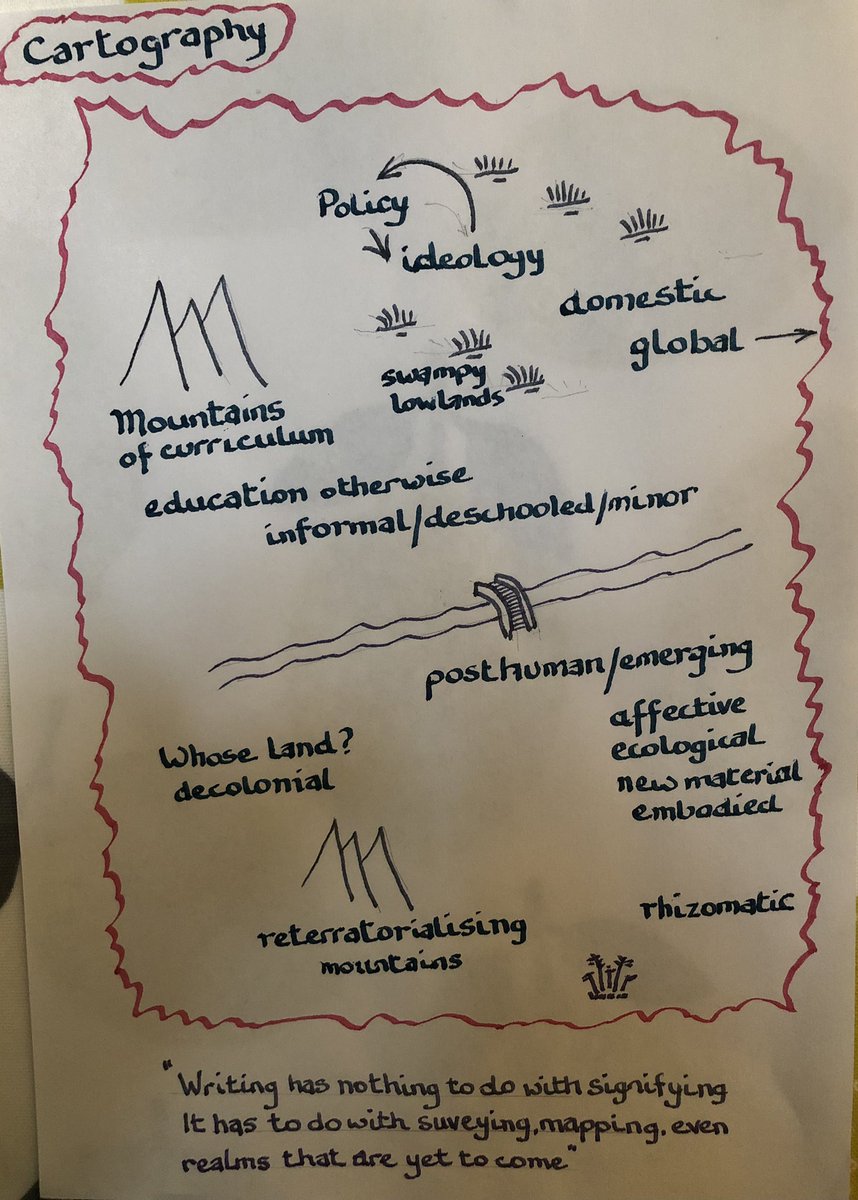 Cartography
Policy
ideology
domestic
global
swampy
lowlands
Mountains
of curriculum
education otherwise
informal/deschooled/minor
posthuman/emerging
affective
ecological
new material
embodied
Whose land?
decolonial
rhizomatic
reterratorialising
mountains
"Writing has nothing to do with signifying
It has to do with suveying, mapping. even
realms that are yet to come"